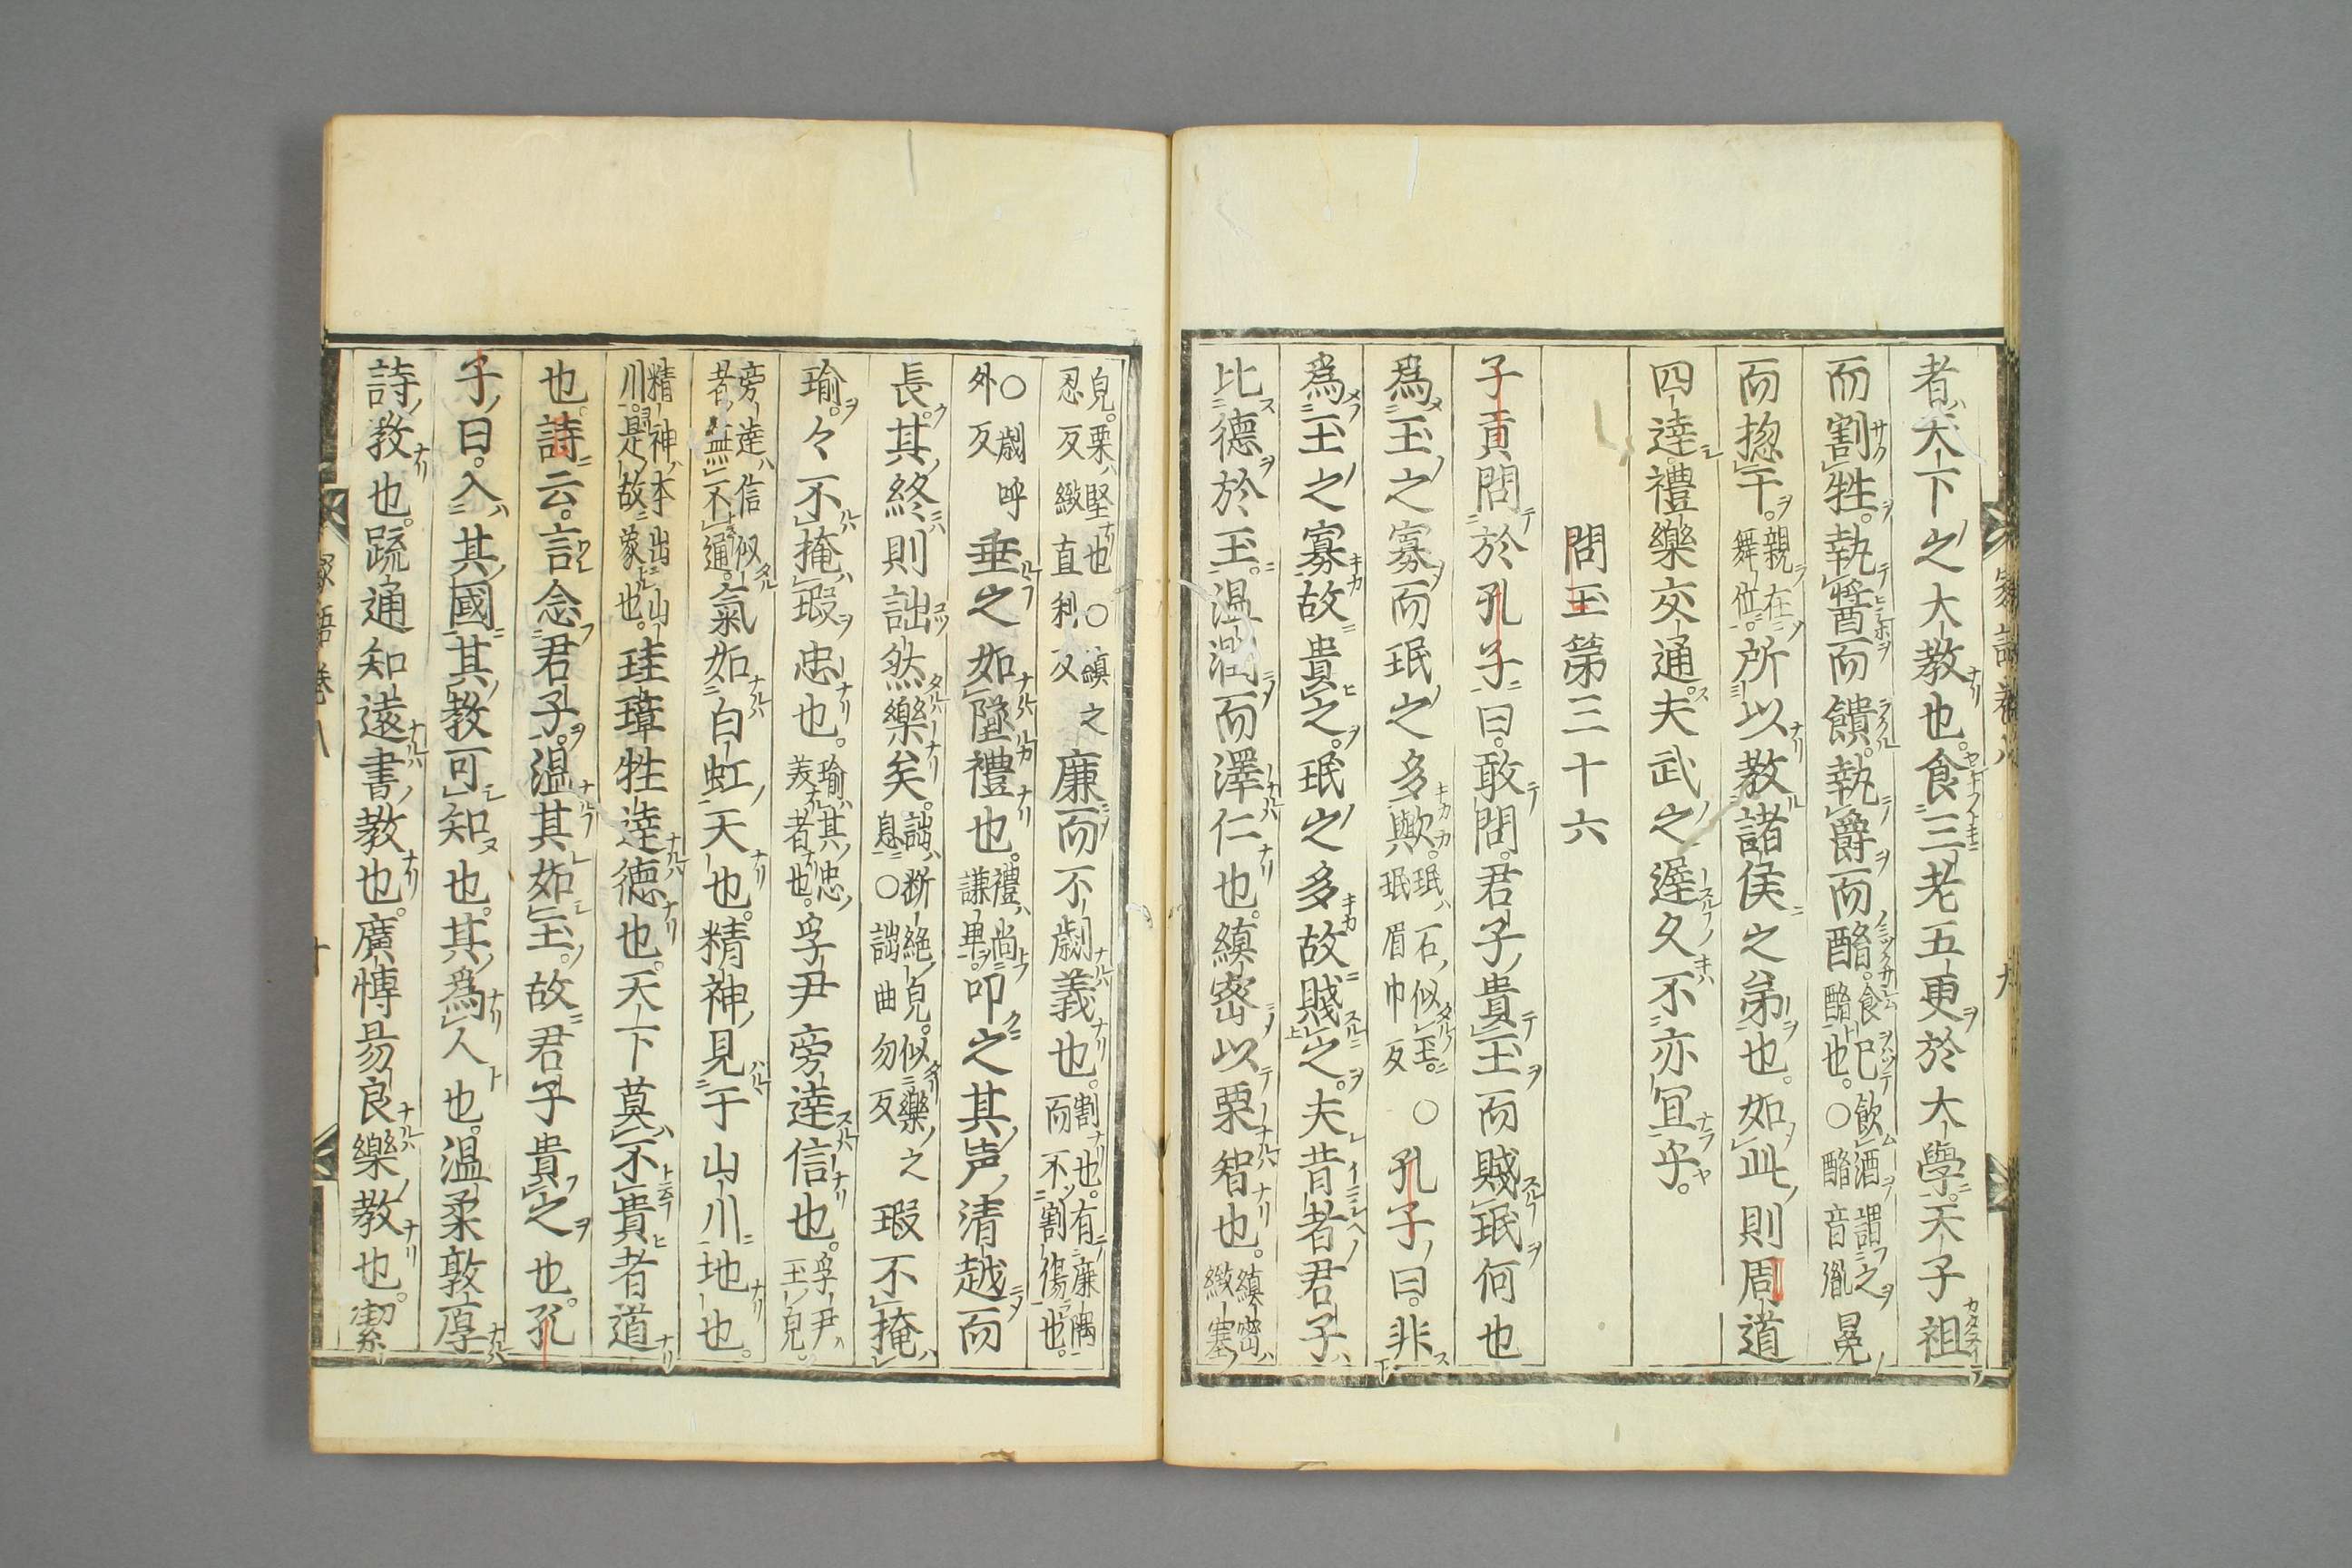 者天下之大教也。食三老五更於大學。天子袒
而割牲。執醤而饋。執爵而酳。食已飲酒謂之酳也。○酳音胤 冕
而揔干。親在舞位。所以教諸侯之弟也。如此則周道
四達。禮樂交通。夫武之遲久不亦冝乎。
問玉第三十六
子貢問於孔子曰。敢問。君子貴玉而賤珉何也
爲玉之寡而珉之多歟。珉石似玉。珉眉巾反 ○孔子曰。非
爲玉之寡故貴之。珉之多故賤之。夫昔者君子
比德於玉。温潤而澤仁也。縝密以栗智也。縝密緻塞
皃。栗堅也○縝之忍反緻直利反 廉而不劌義也。割也。有廉隅而不割傷也。
○劌呼外反 垂之如墜禮也。禮尚謙卑。叩之其声清越而
長。其終則詘然樂矣。詘断絶皃。似樂之息○詘曲勿反 瑕不掩
瑜。々不掩瑕忠也。瑜其忠美者也。孚尹旁達信也。孚尹玉皃。
旁達信似者無不通。氣如白虹天也。精神見于山川地也。
精神本出山川。是故象也。珪璋牲達德也。天下莫不貴者道
也。詩云。言念君子。温其如玉。故君子貴之也。孔
子曰。入其國其教可知也。其爲人也。温柔敦厚
詩教也。疏通知遠書教也。廣博易良樂教也。潔
家語卷八
九
家語卷八
十